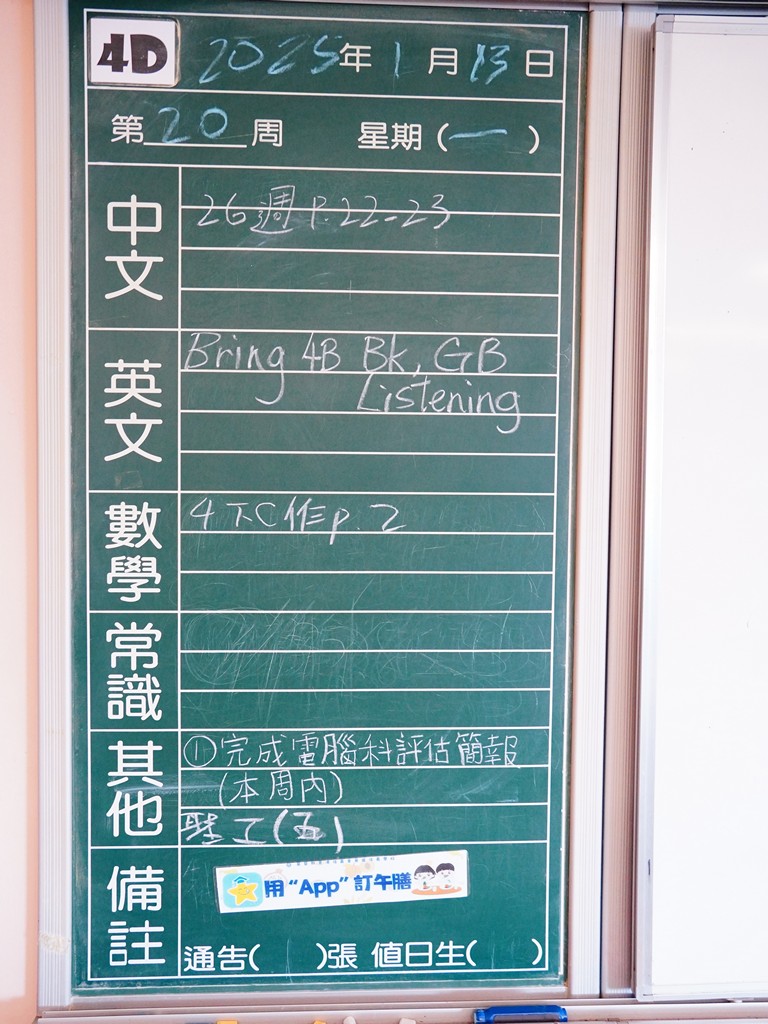 4D 2025年1月13日
第20周 星期(一)
中文
26週 P.22-23
英文
Bring 4B Bk, GB
Listening
數學
4下C作p.2
常識
其他
①完成電腦科評估簡報
(本周內)
工(五)
備註
用“App”訂午膳
通告( )張 值日生( )